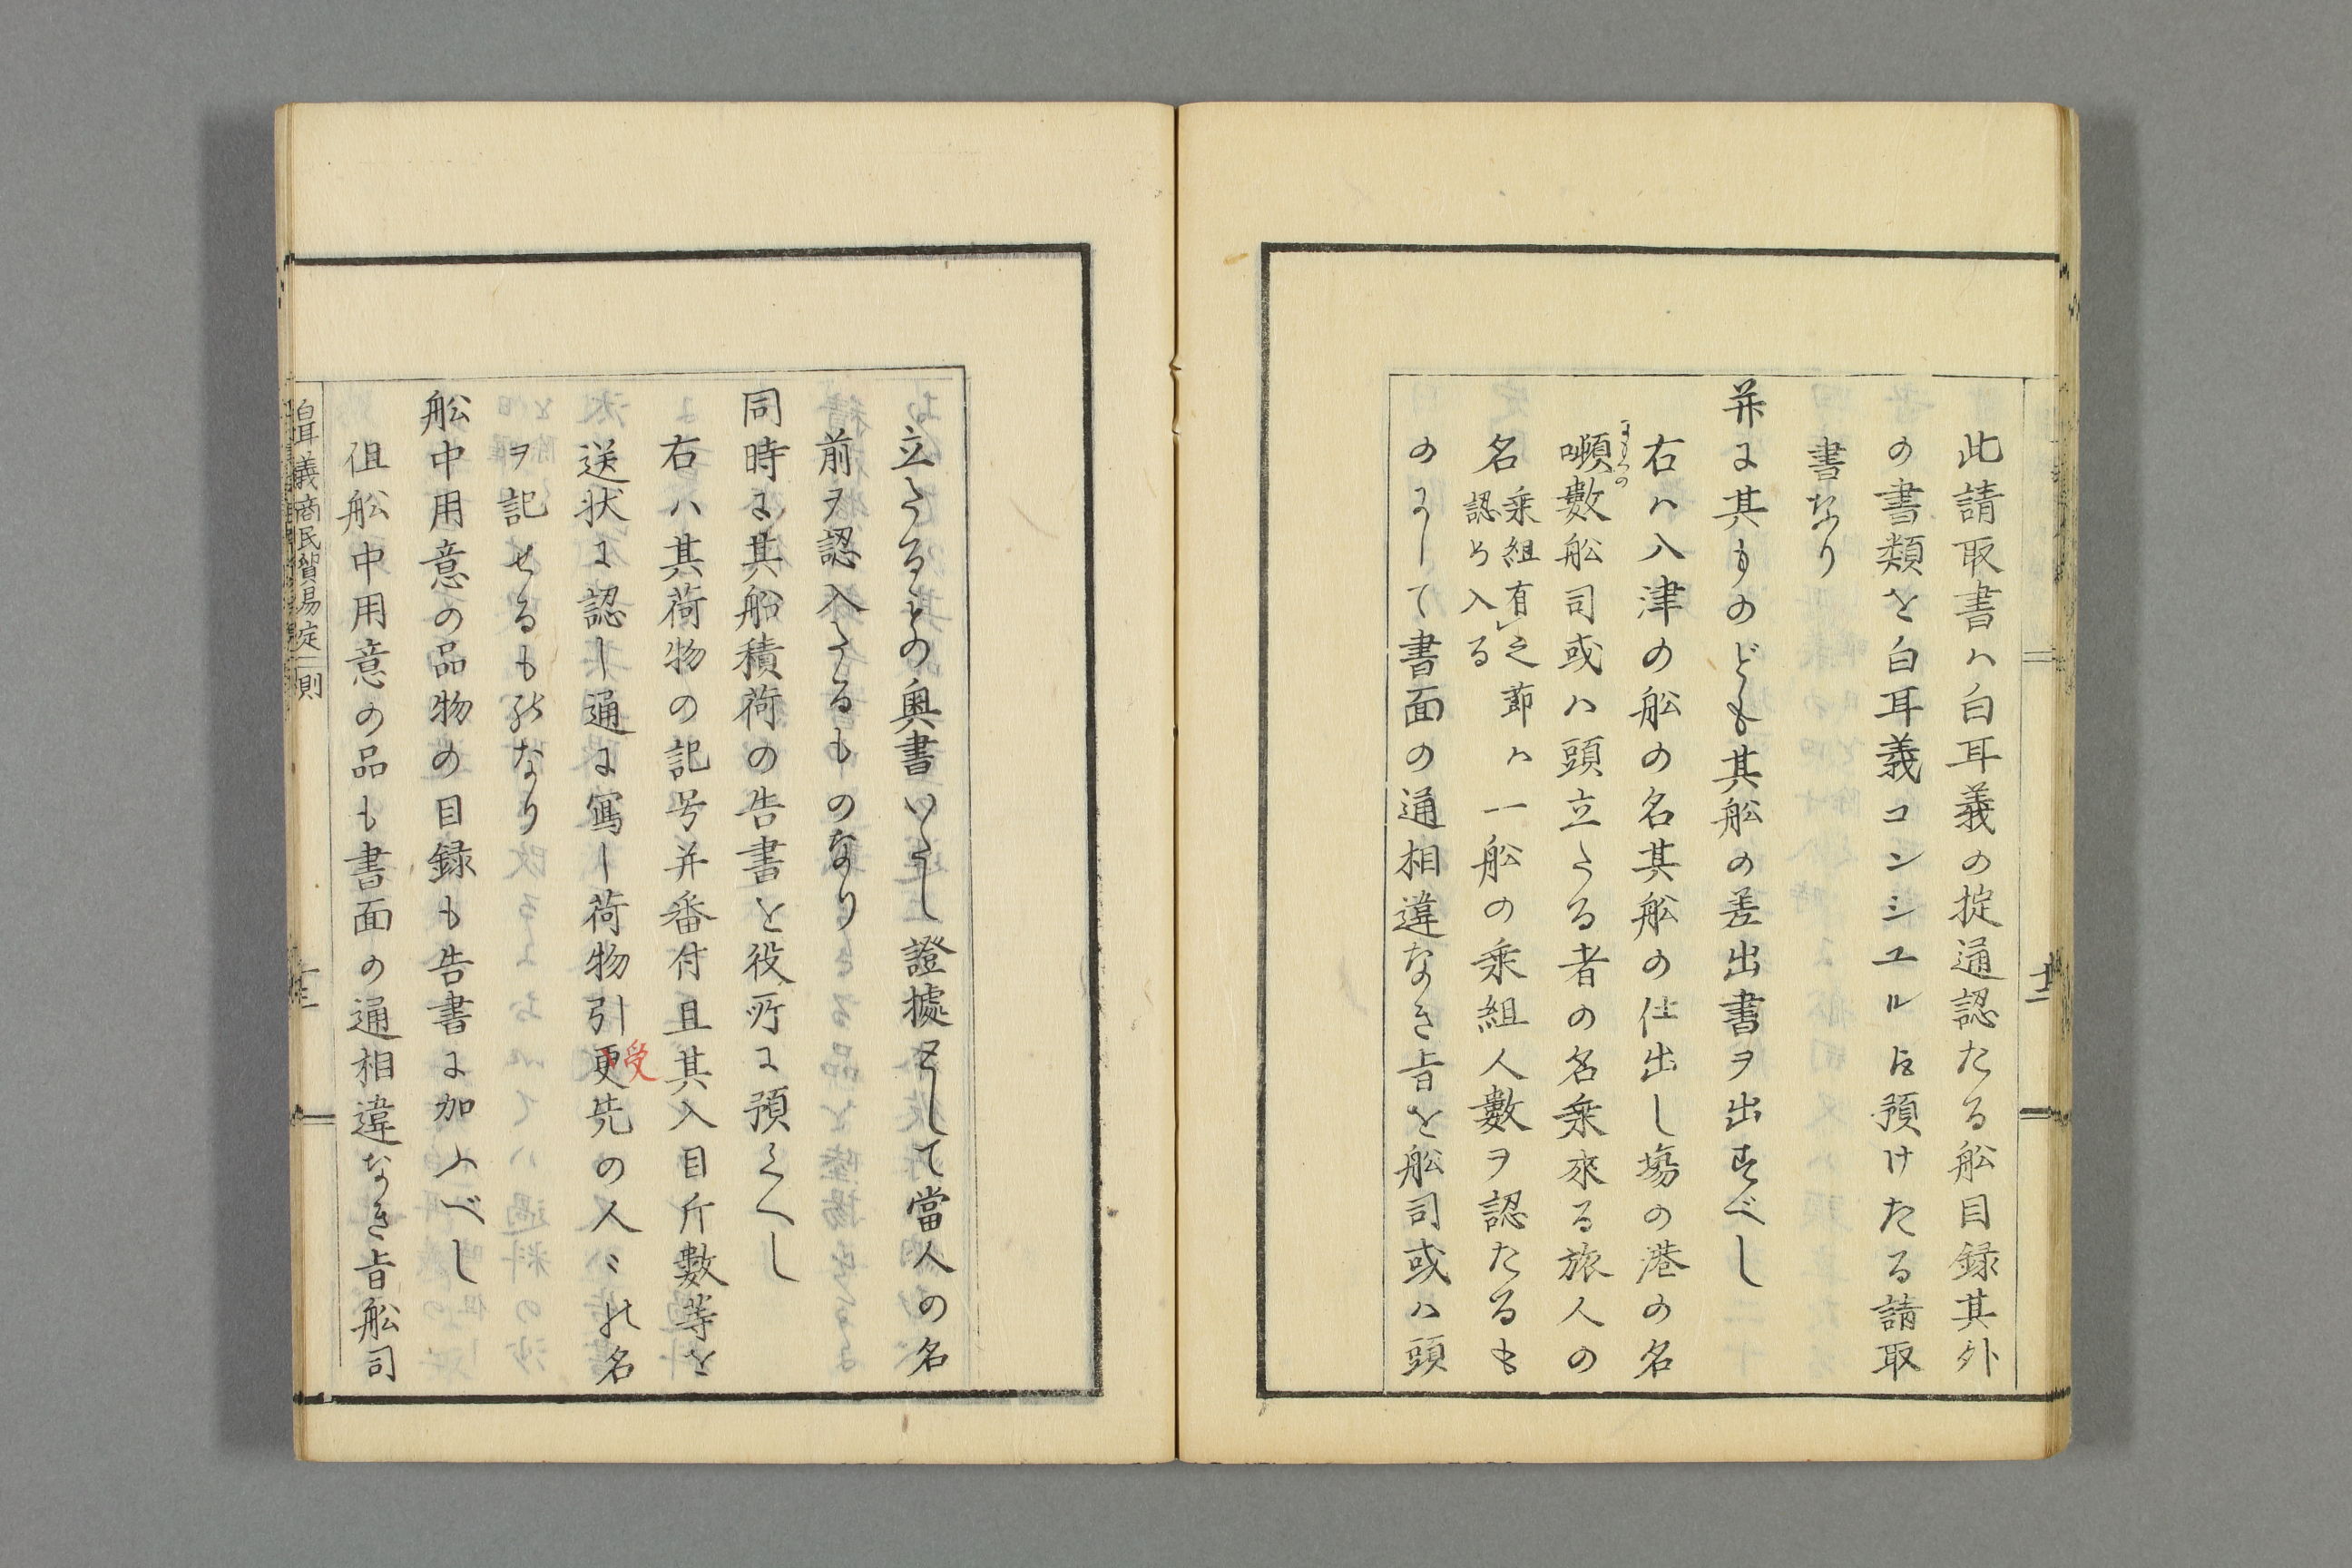 此請取書ハ白耳義の掟通認たる舩目録其外
の書類を白耳義コンシユルに預けたる請取
書なり
并に其ものども其舩の差出書ヲ出すべし
右ハ入津の舩の名其舩の仕出し塲の港の名
噸數舩司或ハ頭立たる者の名乗來る旅人の
名乗組有之節ハ一舩の乗組人數ヲ認たるも
認め入る
のにして書面の通相違なき旨を舩司或ハ頭
十二
立たるもの奥書いたし證據として當人の名
前ヲ認入たるものなり
同時に其船積荷の告書を役所に預くへし
右ハ其荷物の記号并番付且其入目斤數等を
送状に認し通に寫し荷物引更先の人〻の名
受
ヲ記せるものなり
舩中用意の品物の目録も告書に加ふべし
但舩中用意の品も書面の通相違なき旨舩司
白耳義商民貿易定則